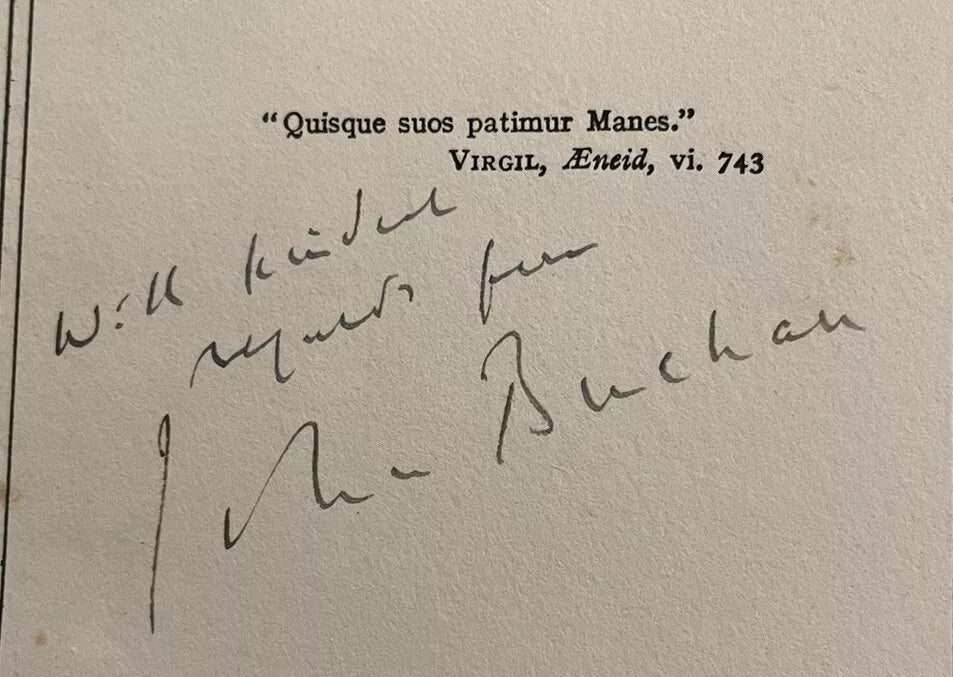 “Quisque suos patimur Manes.”
VIRGIL, Æneid, vi. 743
With kindest
regards from
John Buchan